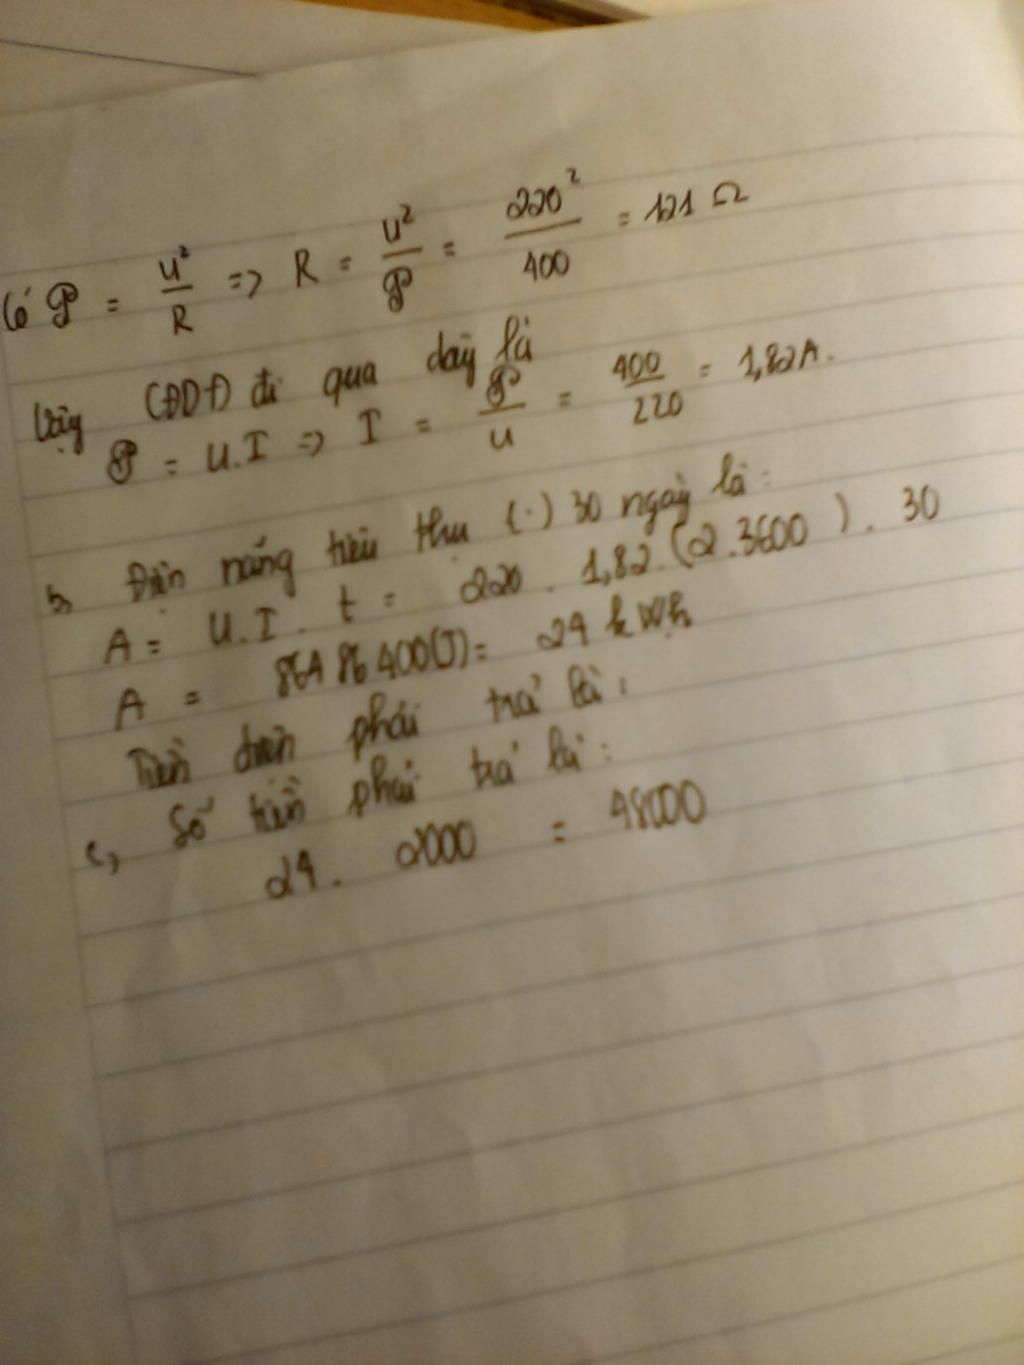 Có P = U²/R => R = U²/P = 220²/400 = 121 Ω
Vậy (CĐDĐ) đi qua dây là
P = U.I => I = P/U = 400/220 = 1,82A.
b, Điện năng tiêu thụ (.) 30 ngày là:
A = U.I.t = 220.1,82.(2.3600).30
A = 86486400(J) = 24 kWh
Tiền điện phải trả là:
c, Số tiền phải trả là:
24. 2000 = 48000